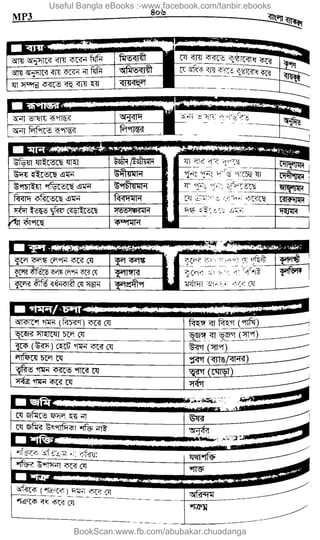 Useful Bangla eBooks :-www.facebook.com/tanbir.ebooks
MP3 ৪০৬ বাংলা ব্যাকরণ
■ ব্যয়
আয় অনুসারে ব্যয় করেন যিনি মিতব্যয়ী
আয় অনুসারে ব্যয় করেন না যিনি অমিতব্যয়ী
যা সম্পন্ন করতে বহু ব্যয় হয় ব্যয়বহুল
যে ব্যয় করতে কুণ্ঠাবোধ করে কৃপণ
যে অধিক ব্যয় করতে কুণ্ঠাবোধ করে ব্যয়কুণ্ঠ
■ রূপান্তর
অন্য ভাষায় রূপান্তর অনুবাদ
অন্য লিপিতে রূপান্তর লিপ্যন্তর
অন্য ভাষায় রূপান্তরিত অনূদিত
■ মান
উড়িয়া যাইতেছে যাহা
উদয় হইতেছে এমন উদীয়মান
উপচাইয়া পড়িতেছে এমন উপচীয়মান
বিবাদ করিতেছে এমন বিবদমান
সর্বদা ইতস্তত ঘুরিয়া বেড়াইতেছে সততসঞ্চরমান
যা কাঁপছে কম্পমান
যা বার বার দুলছে দোদুল্যমান
পুনঃ পুনঃ দীপ্তি পাচ্ছে যা দেদীপ্যমান
দগ্ধ হইতেছে এমন দহ্যমান
■ কুল
কুলে কলঙ্ক লেপন করে যে কুল কলঙ্ক
কুলের কীর্তিতে কলঙ্ক লেপন করে যে কুলাঙ্গার
কুলের কীর্তি বর্ধনকারী যে সন্তান কুলপ্রদীপ
কুলতিলক
■ গমন/ চলা
আকাশে গমন (বিচরণ) করে যে বিহঙ্গ বা বিহগ (পাখি)
ভূজের সাহায্যে চলে যে ভূজঙ্গ বা ভূজগ (সাপ)
বুকে (উরস) হেটে গমন করে যে উরগ (সাপ)
লাফিয়ে চলে যে প্লবগ (ব্যাঙ/বানর)
ত্বরিত গমন করতে পারে যে তুরগ (ঘোড়া)
সর্বত্র গমন করে যে সর্বগ
■ জমি
যে জমিতে ফসল হয় না ঊষর
যে জমির উৎপাদিকা শক্তি নাই অনুর্বর
■ শক্তি
যথাশক্তি
শক্তির উপাসনা করে যে শাক্ত
■ শত্রু
অরিকে (শত্রুকে) দমন করে যে অরিন্দম
শত্রুকে বধ করে যে শত্রুঘ্ন
BookScan:www.fb.com/abubakar.chuadanga